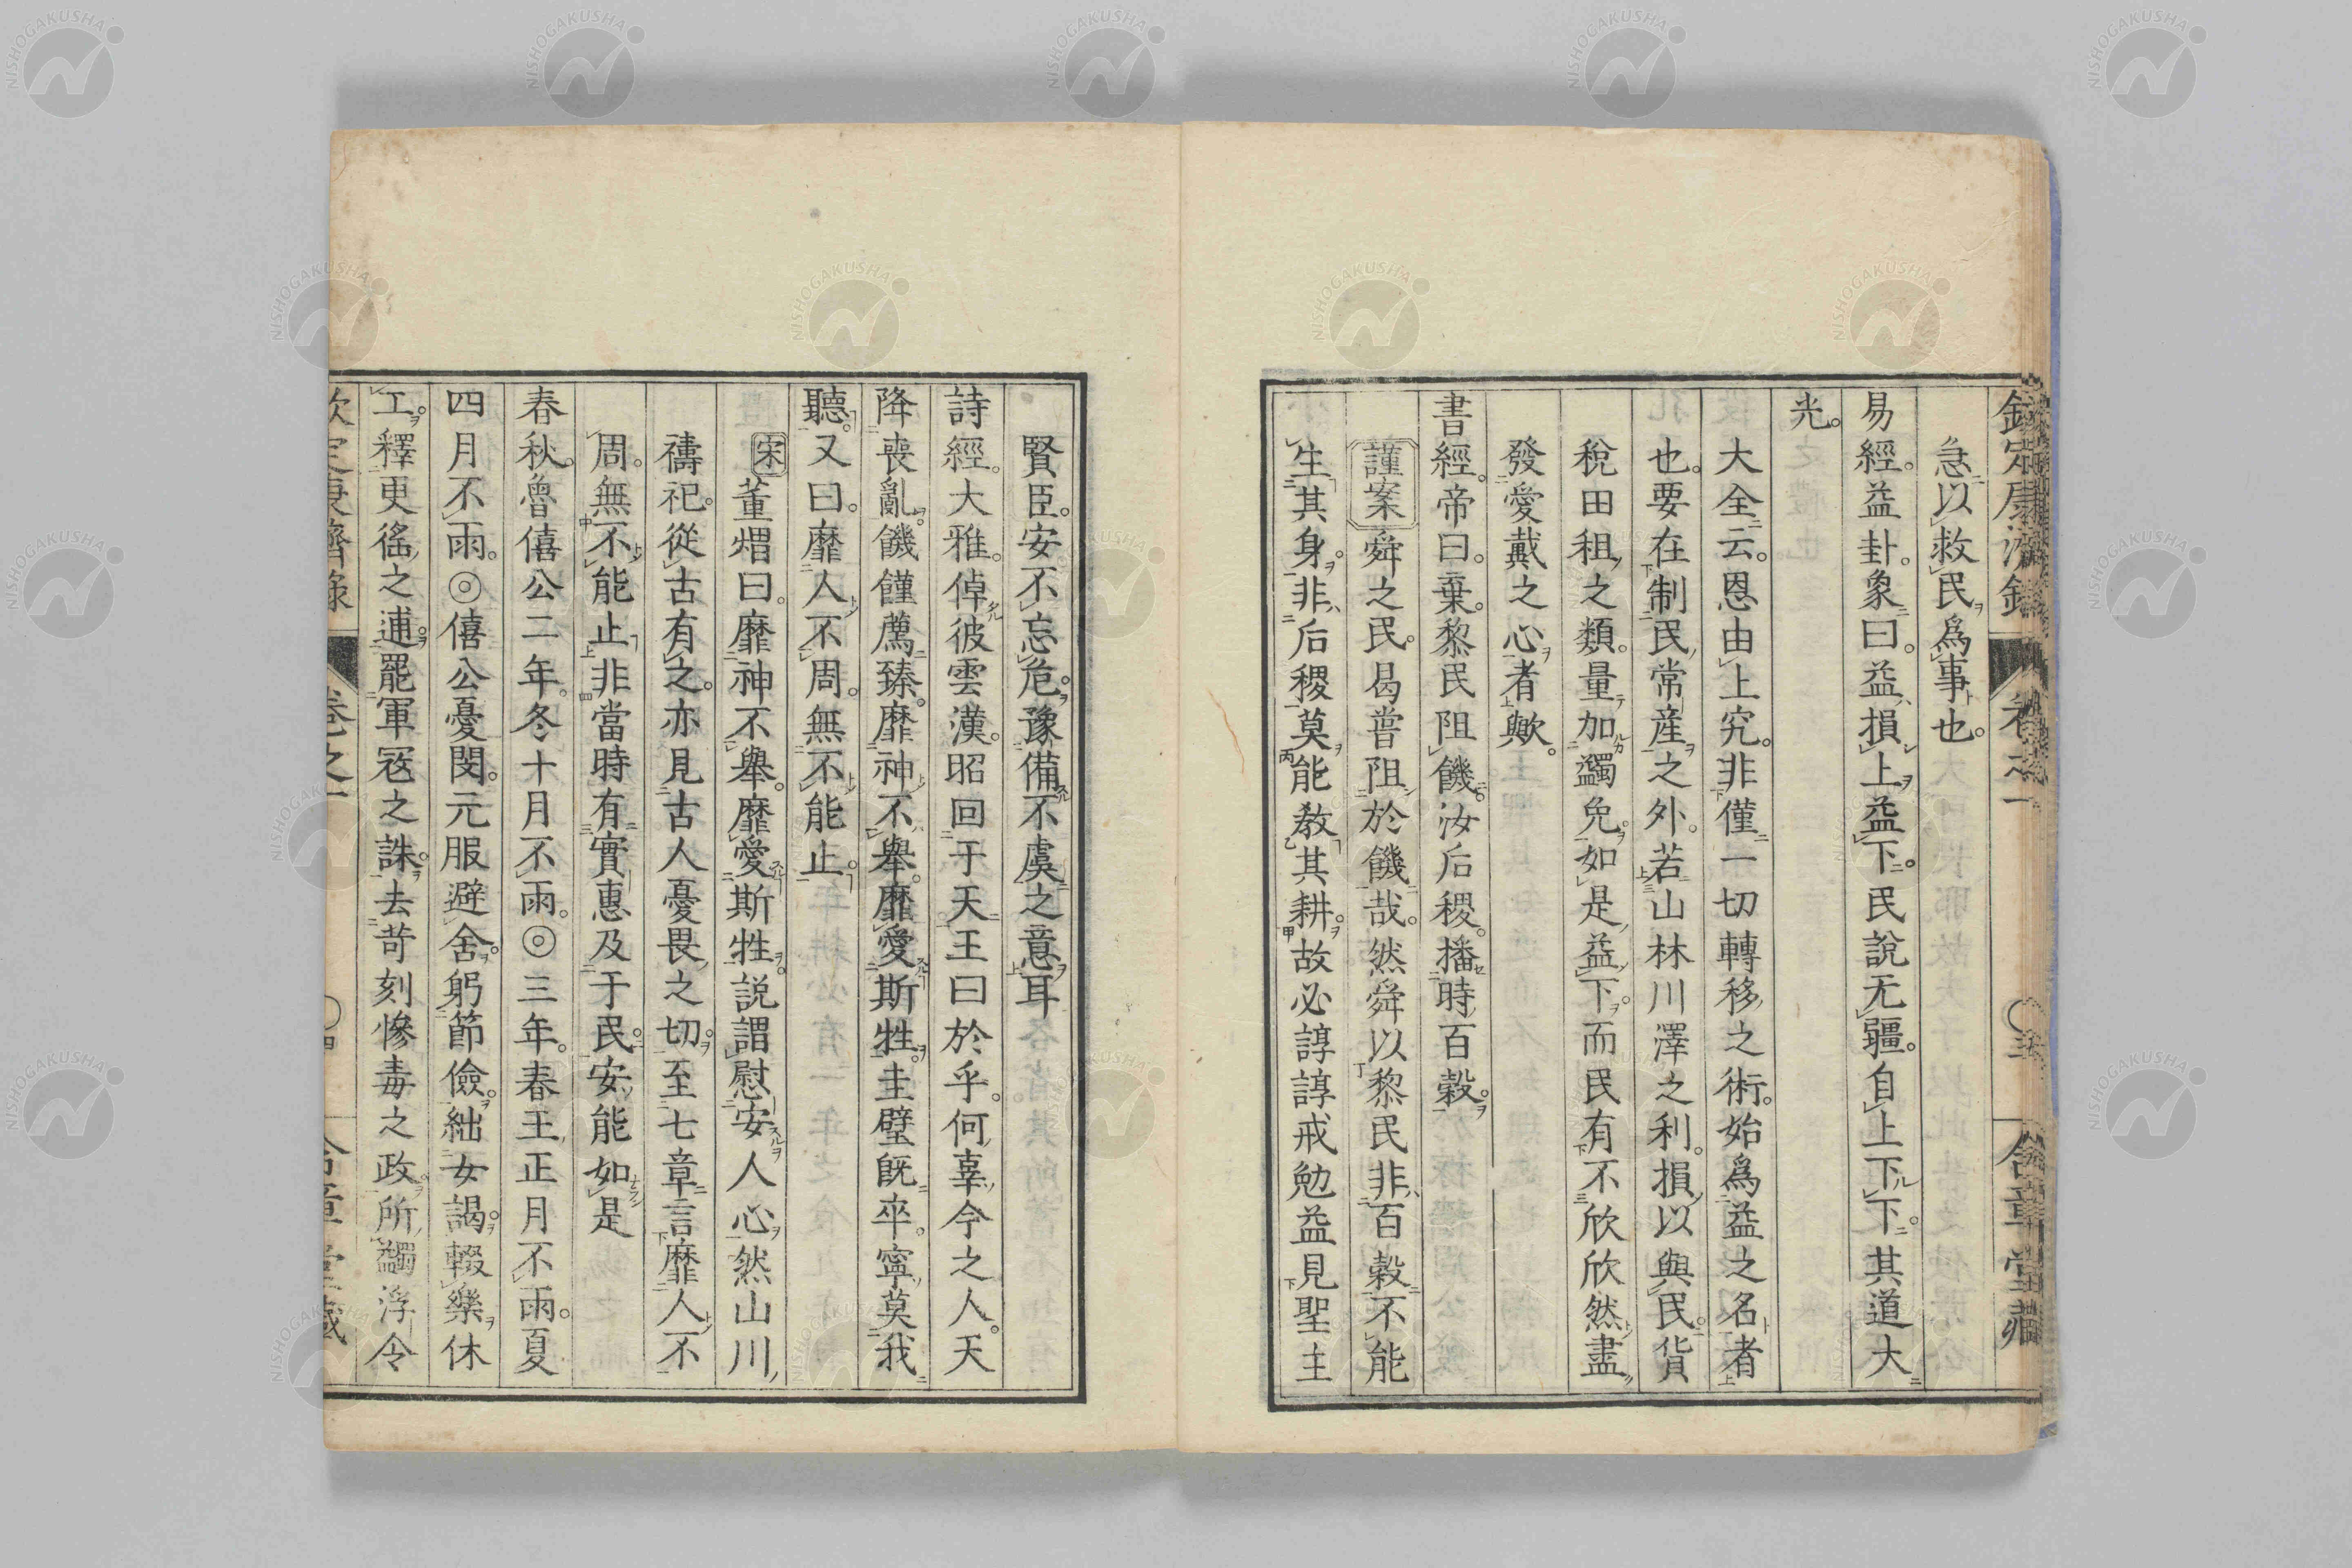 欽定康濟錄 卷之一 含章堂藏
急以救民爲事也。
易經。益卦。彖曰。益損上益下。民說无疆。自上下下。其道大
光。
大全云。恩由上究。非僅一切轉移之術。始爲益之名者
也。要在制民常産之外。若山林川澤之利。損以與民。貨
稅田租之類。量加蠲免。如是益下。而民有不欣欣然盡
發愛戴之心者歟。
書經。帝曰。棄。黎民阻饑。汝后稷。播時百穀。
謹案 舜之民。曷嘗阻於饑哉。然舜以黎民非百穀不能
生其身。非后稷莫能敎其耕。故必諄諄戒勉益見聖主
賢臣。安不忘危。豫備不虞之意耳
詩經。大雅。倬彼雲漢。昭回于天。王曰於乎。何辜今之人。天
降喪亂。饑饉薦臻。靡神不舉。靡愛斯牲。圭璧旣卒。寧莫我
聽。又曰。靡人不周。無不能止。
宋 董煟曰。靡神不舉。靡愛斯牲。説謂慰安人心。然山川
禱祀。從古有之。亦見古人憂畏之切。至七章言靡人不
周。無不能止。非當時有實惠及于民。安能如是
春秋。魯僖公二年。冬十月不雨。◎三年。春王正月不雨。夏
四月不雨。◎僖公憂閔。元服避舍。躬節儉。絀女謁。輟樂。休
工。釋更徭之逋。罷軍寇之誅。去苛刻慘毒之政。所蠲浮令
欽定康濟錄 卷之一 〇四 含章堂藏